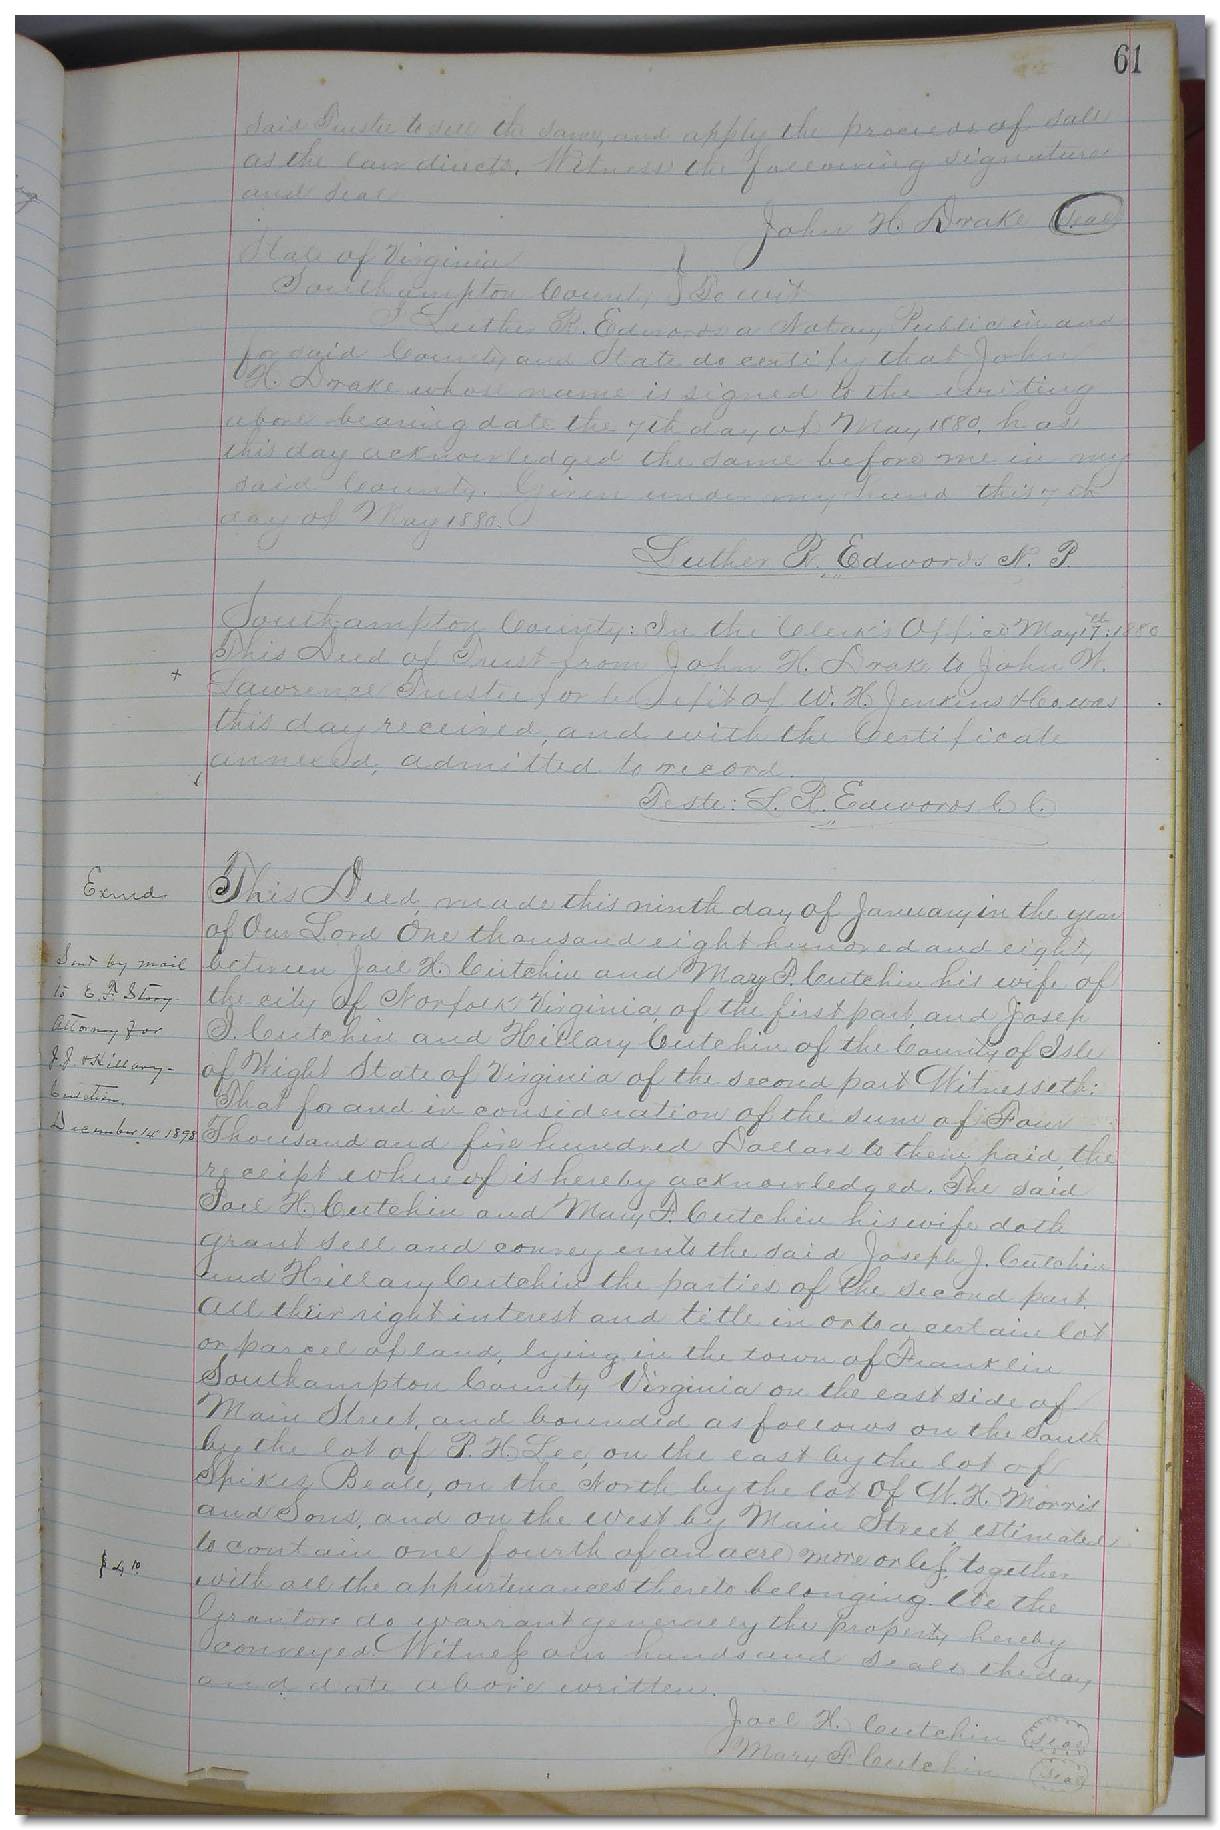 61
said Trustee to sell the same, and apply the proceeds of sale
as the law directs. Witness the following signature
and seal
John H. Drake (Seal)
State of Virginia
Southampton County } To wit
I Luther R. Edwards a Notary Public in and
for said County and State do certify that John
H. Drake whose name is signed to the writing
above bearing date the 7th day of May 1880. has
this day acknowledged the same before me in my
said County. Given under my hand this 7th
day of May 1880.
Luther R. Edwards N. P.
Southampton County: In the Clerk's Office May 17th 1880
This Deed of Trust from John H. Drake to John W.
Lawrence Trustee for benefit of W. H. Jenkins & Co was
this day received, and with the Certificate
annexed, admitted to record.
Teste: L. R. Edwards C. C.
Exmd
This Deed, made this ninth day of January in the year
of Our Lord One thousand eight hundred and eighty
between Joel H. Cutchin and Mary F. Cutchin his wife of
the city of Norfolk, Virginia, of the first part, and Josep
J. Cutchin and Hillary Cutchin of the County of Isle
of Wight State of Virginia of the second part Witnesseth:
That for and in consideration of the sum of Four
Thousand and five hundred Dollars to them paid, the
receipt whereof is hereby acknowledged. The said
Joel H. Cutchin and Mary F. Cutchin his wife doth
grant sell and convey unto the said Joseph J. Cutchin
and Hillary Cutchin the parties of the second part.
All their right interest and title in or to a certain lot
or parcel of land, lying in the town of Franklin
Southampton County Virginia on the east side of
Main Street, and bounded as follows on the South
by the lot of P. H. Lee, on the east by the lot of
Beale, on the North by the lot of W. H. Morris
and Sons, and on the West by Main Street estimated
to contain one fourth of an acre more or less together
with all the appurtenances thereto belonging. We the
Grantors do warrant generally the property hereby
conveyed. Witness our hands and seals the day
and date above written.
Joel H. Cutchin (Seal)
Mary F. Cutchin (Seal)
Sent by mail
to E. F. Story
Attorney for
J. J. & Hillary
Cutchin.
December 14 1898
$4.10